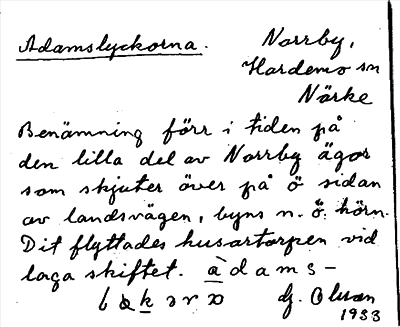 Adamslyckorna. Norrby,
Hardemo sn
Närke
Benämning förr i tiden på
den lilla del av Norrby ägor
som skjuter över på ö sidan
av landsvägen, byns n. ö. hörn.
Dit flyttades husartorpen vid
laga skiftet. àdams-
Olsson
1933